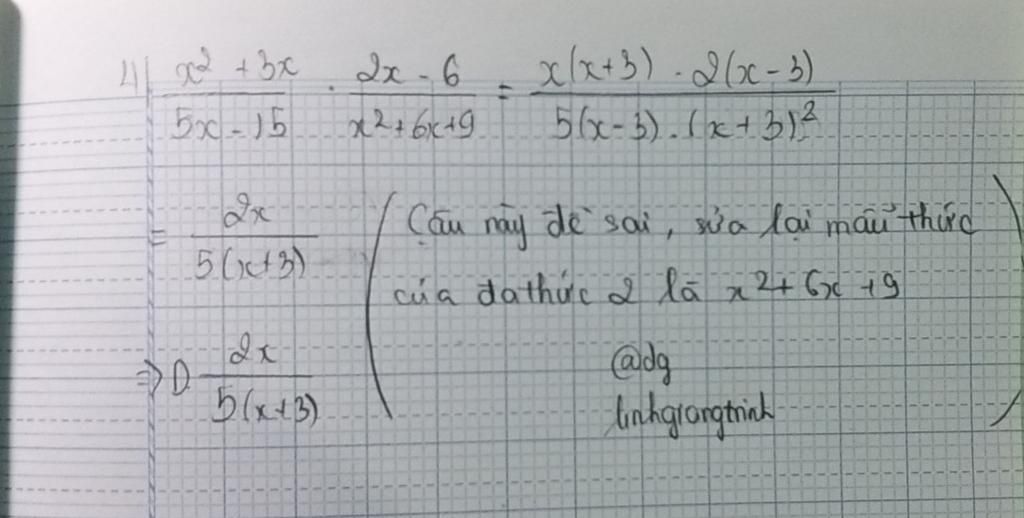 4) x² + 3x / 5x - 15 . 2x - 6 / x² + 6x + 9 = x(x+3) . 2(x-3) / 5(x-3) . (x+3)²
= 2x / 5(x+3) (Câu này đề sai, sửa lại mẫu thức
của đa thức 2 là x² + 6x + 9
⇒ D 2x / 5(x+3) @dg
linhgiangtrinh)